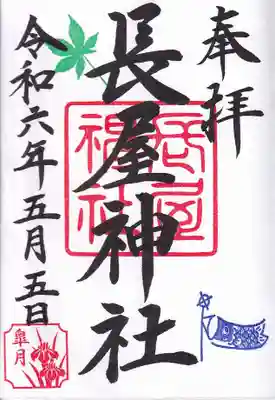 奉拝
長屋神社
長屋神社
令和六年五月五日
皐月